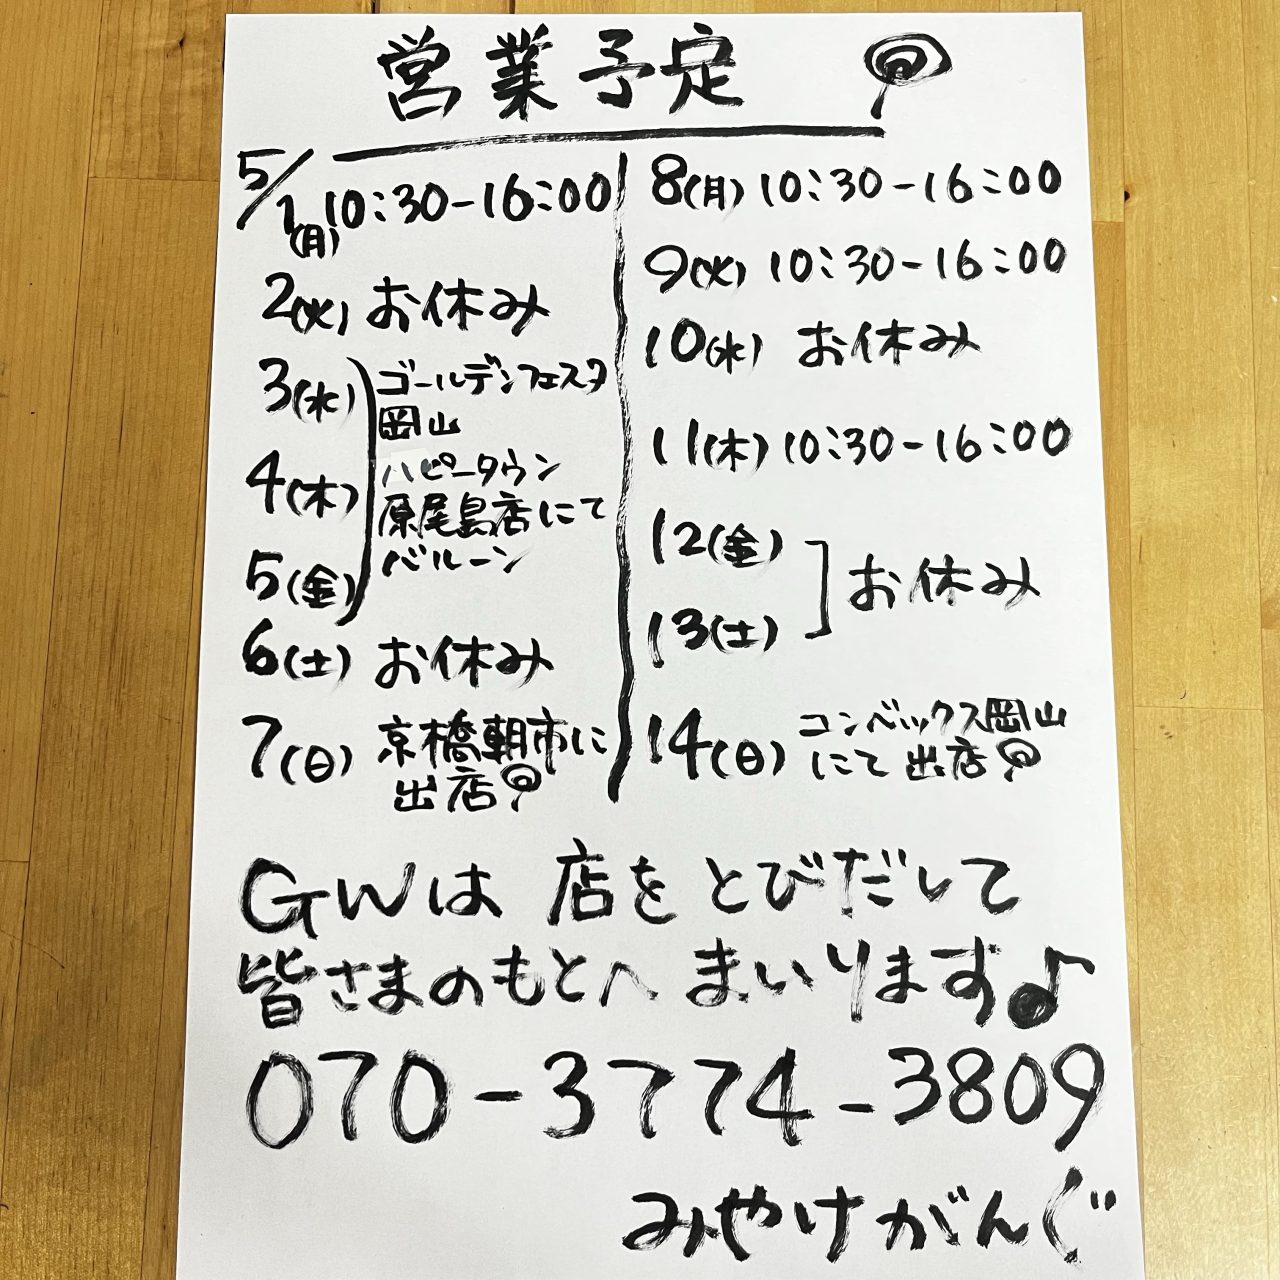 営業予定
5/1(月) 10:30-16:00
2(火) お休み
3(水) ゴールデンフェスタ
岡山
4(木) ハピータウン
原尾島店にて
5(金) バルーン
6(土) お休み
7(日) 京橋朝市に
出店
8(月) 10:30-16:00
9(火) 10:30-16:00
10(水) お休み
11(木) 10:30-16:00
12(金)
お休み
13(土)
14(日) コンベックス岡山
にて出店
GWは 店をとびだして
皆さまのもとへ まいります♪
070-3774-3809
みやけがんぐ